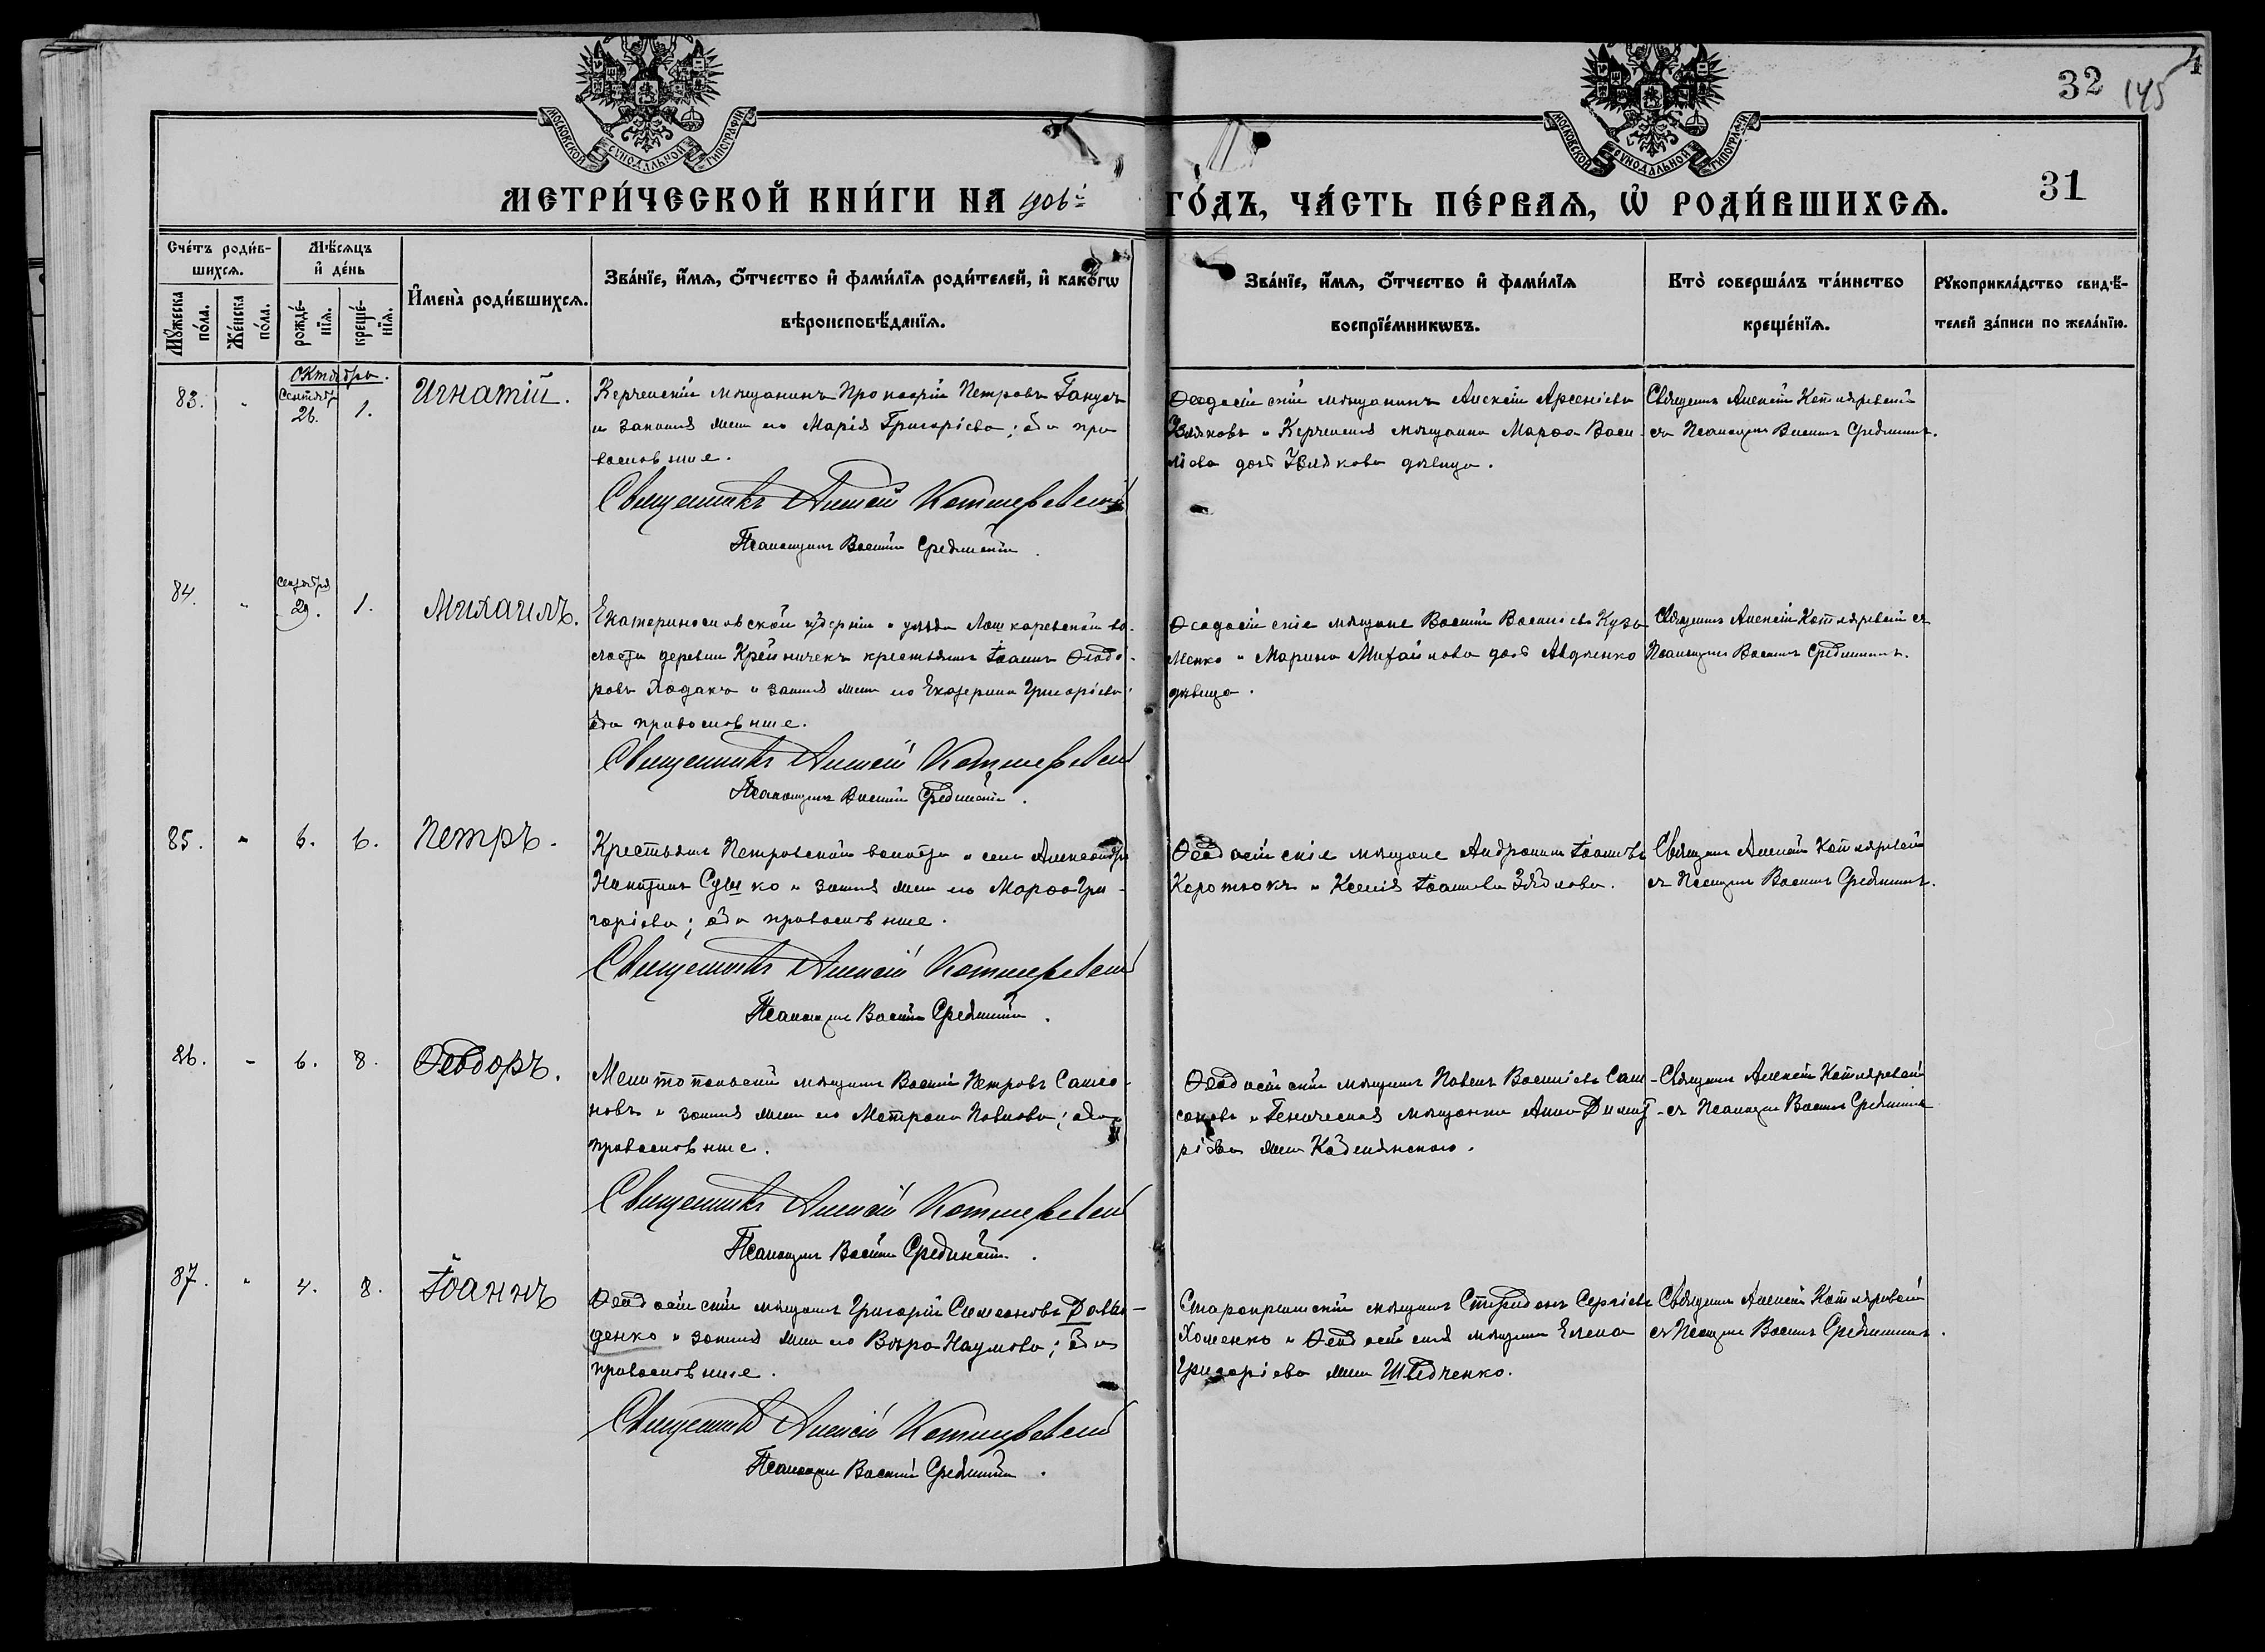 32
145
МОСКОВСКОЙ СѴНОДАЛЬНОЙ ТИПОГРАФІИ
МОСКОВСКОЙ СѴНОДАЛЬНОЙ ТИПОГРАФІИ
31
МЕТРИ́ЧЕСКОЙ КНИ́ГИ НА 1906й ГО́ДЪ, ЧА́СТЬ ПЕ́РВАѦ, Ѽ РОДИ́ВШИХСѦ.
Сче́тъ роди́в-
шихсѧ.
Мѣ́сѧцъ
и҆ де́нь
Мꙋ́жеска по́ла.
Же́нска по́ла.
рожде́-
нїѧ.
креще́-
нїѧ.
И҆мена̀ роди́вшихсѧ.
Зва́нїе, и҆́мѧ, ѻ҆́тчество и҆ фами́лїѧ роди́телей, и҆ како́гѡ
вѣроисповѣ́данїѧ.
Зва́нїе, и҆́мѧ, ѻ҆́тчество и҆ фами́лїѧ
воспрїе́мникѡвъ.
Кто̀ соверша́лъ та́инство
креще́нїѧ.
Рꙋкоприкла́дство свидѣ́-
телей за́писи по жела́нїю.
Октября.
83. " Сентябр 26. 1. Игнатій.
Керченскій мѣщанинъ Прокопій Петровъ Ганусъ
и законная жена его Марія Григоріева; оба пра
вославные.
Священникъ Алексій Котляревскій
Псаломщикъ Василій Срединскій.
Ѳеодосійскій мѣщанинъ Алексій Арсеніевъ
и Керченская мѣщанка Марѳа Васи-
ліева дочь дѣвица.
Священ. Алексій Котляревскій
съ Псаломщик. Василіем Срединским.
84. " Сентября 29. 1. Михаилъ.
Екатеринославской губерніи и уѣзда Лошкаревской во-
лости деревни крестьянинъ Іоаннъ Ѳеодо-
ровъ Ходакъ и закон. жена его Екатерина Григоріева;
оба православные.
Священникъ Алексій Котляревскій
Псаломщикъ Василій Срединскій.
Ѳеодосійскіе мѣщане Василій Василіевъ Кузь-
менко и Марина Михайлова дочь Авдченко
дѣвица.
Священ. Алексій Котляревскій съ
Псаломщик. Василіем Срединским.
85. " 6. 6. Петръ.
Крестьян. Петровской волости и села Александръ
Никитинъ Сушко и закон. жена его Марѳа Гри-
горіева; оба православные.
Священникъ Алексій Котляревскій
Псаломщикъ Василій Срединскій.
Ѳеодосійскіе мѣщане Андроникъ Іоанновъ
Коротюкъ и Ксенія Іоаннова
Священ. Алексій Котляревскій
съ Псаломщ. Василіем Срединским.
86. " 6. 8. Ѳеодоръ.
Мелитопольскій мѣщанин Василій Петровъ
и закон. жена его Матрона Павлова; оба
православные.
Священникъ Алексій Котляревскій
Псаломщикъ Василій Срединскій.
Ѳеодосійскій мѣщанин Павелъ Василіевъ Сам-
соновъ и Геническая мѣщанка Анна Димит-
ріева жена
Священ. Алексій Котляревскій
съ Псаломщик. Василіем Срединским
87. " 4. 8. Іоаннъ
Ѳеодосійскій мѣщанин Григорій Симеоновъ
и закон. жена его Вѣра Наумова; оба
православные.
Священникъ Алексій Котляревскій
Псаломщикъ Василій Срединскій.
Старокрымскій мѣщанин Спиридонъ Сергіевъ
Хоменко и Ѳеодосійская мѣщанка Елена
Григоріева жена Шведченко.
Священ. Алексій Котляревскій
съ Псаломщ. Василіем Срединским.